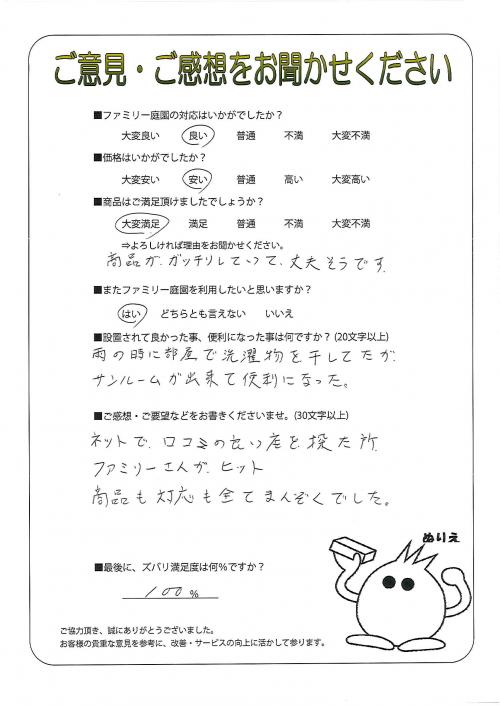 ご意見・ご感想をお聞かせください
■ファミリー庭園の対応はいかがでしたか？
大変良い 良い 普通 不満 大変不満
■価格はいかがでしたか？
大変安い 安い 普通 高い 大変高い
■商品はご満足頂けましたでしょうか？
大変満足 満足 普通 不満 大変不満
⇒よろしければ理由をお聞かせください。
商品が、ガッチリしていて、丈夫そうです。
■またファミリー庭園を利用したいと思いますか？
はい どちらとも言えない いいえ
■設置されて良かった事、便利になった事は何ですか？(20文字以上)
雨の時に部屋で洗濯物を干してたが、
サンルームが出来て便利になった。
■ご感想・ご要望などをお書きくださいませ。(30文字以上)
ネットで、口コミの良い店を、探た所、
ファミリーさんが、ヒット
商品も対応も全てまんぞくでした。
ぬりえ
■最後に、ズバリ満足度は何％ですか？
100 %
ご協力頂き、誠にありがとうございました。
お客様の貴重な意見を参考に、改善・サービスの向上に活かして参ります。